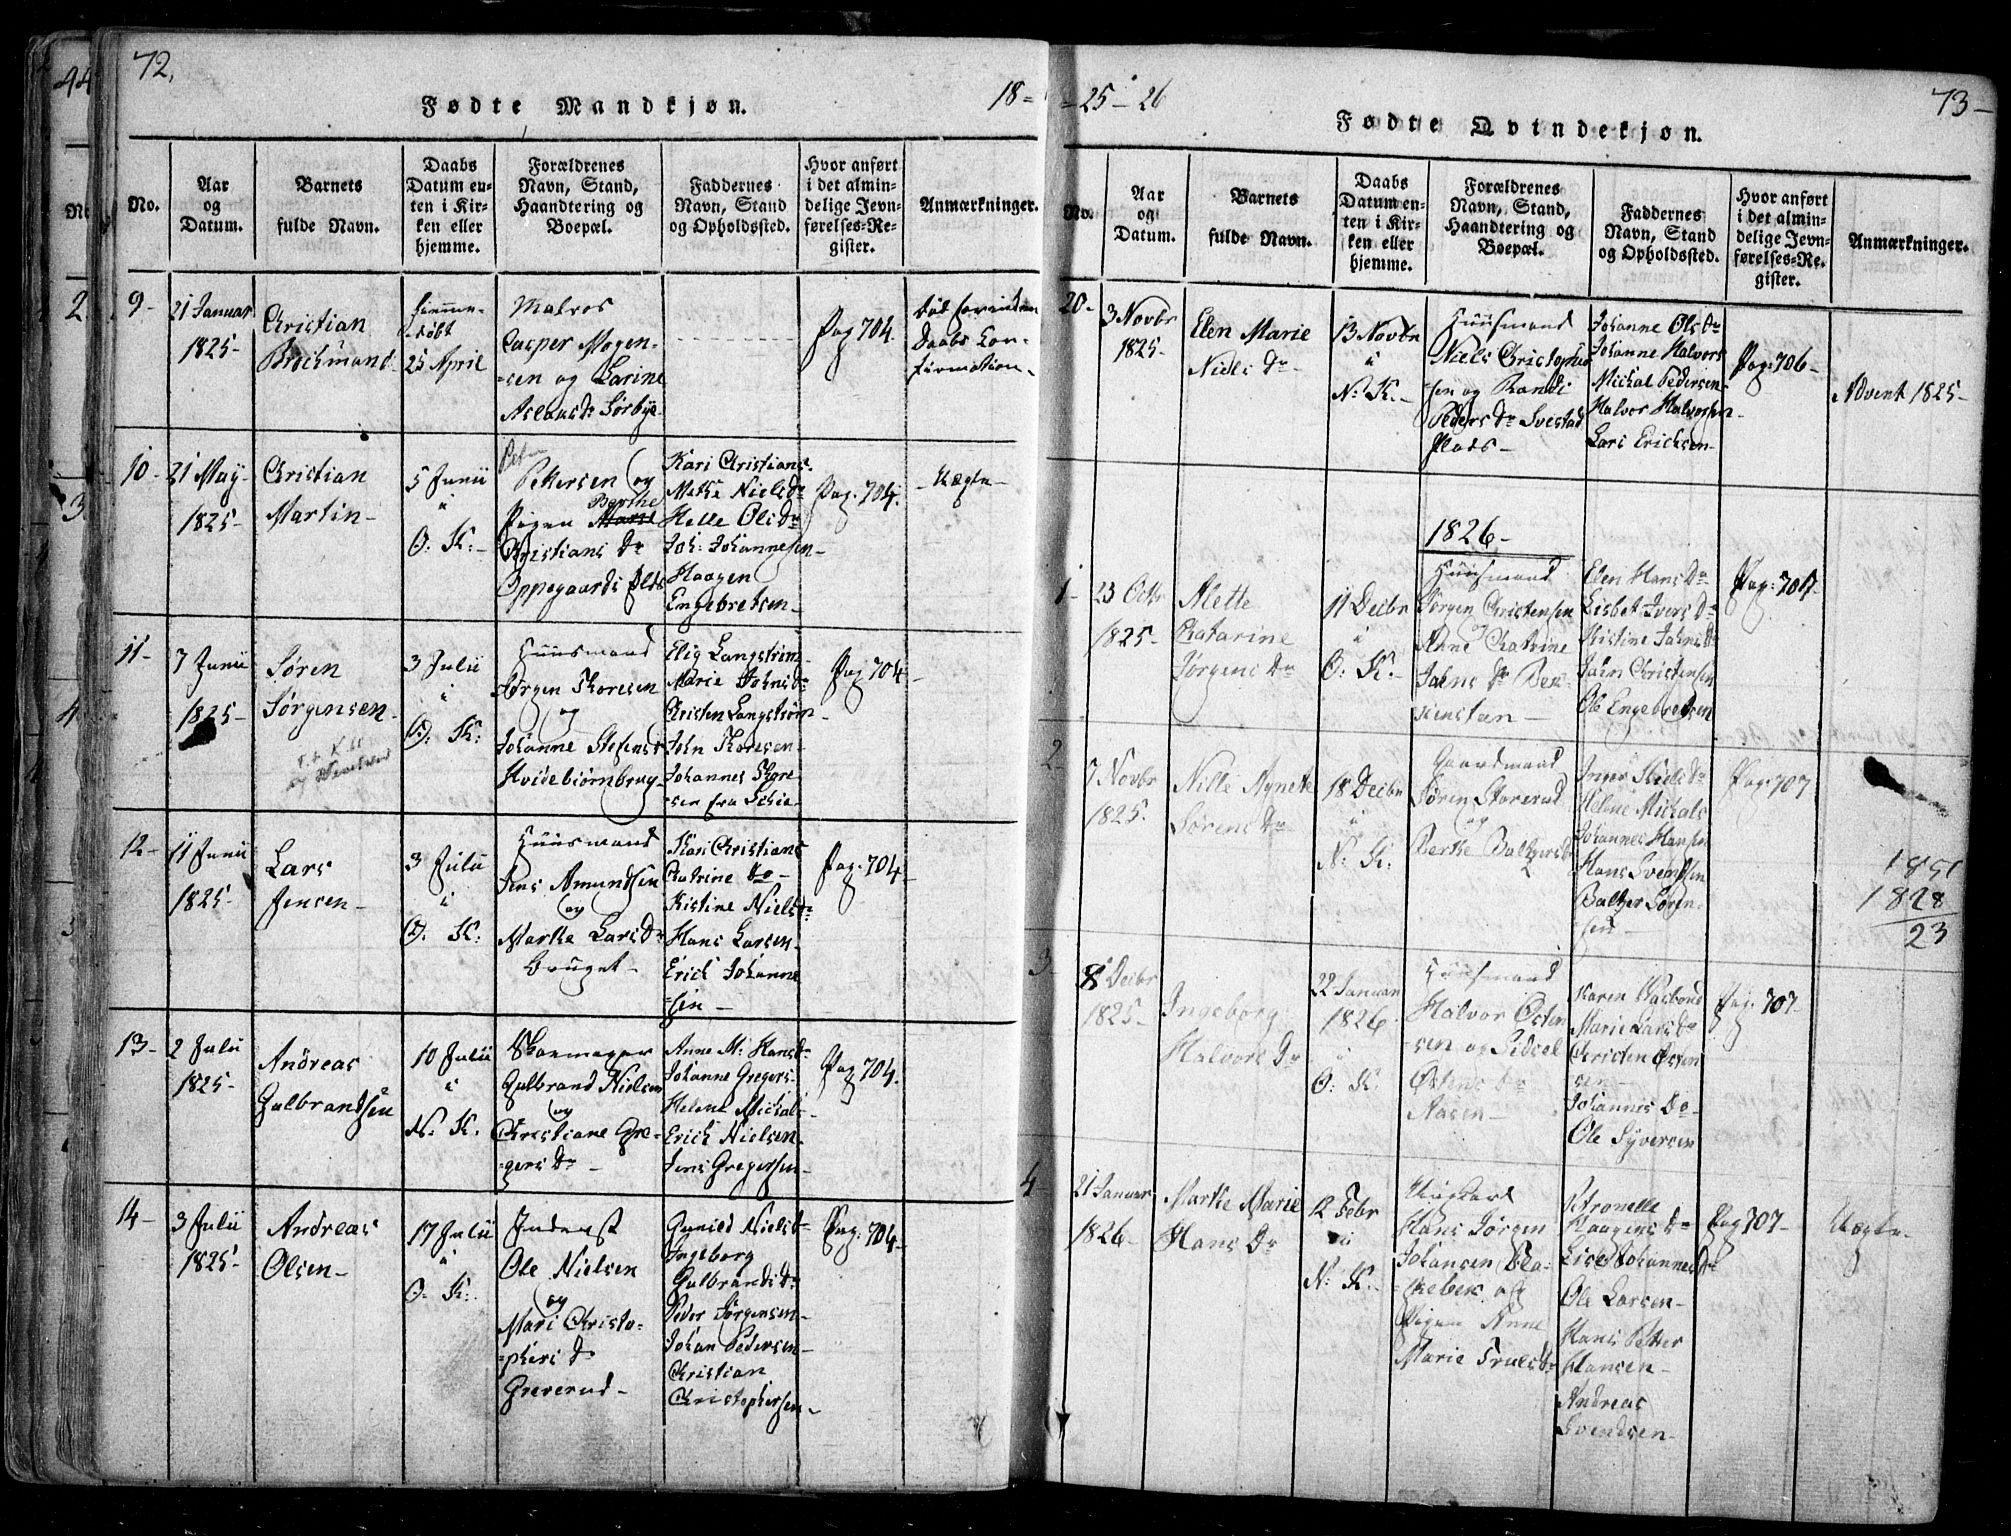 72.
18 = = 25 - 26
73 -
Fødte Mandkjøn.
No.
Aar
og
Datum.
Barnets
fulde Navn.
Daabs
Datum en-
ten i Kir-
ken eller
hjemme.
Forældrenes
Navn, Stand,
Haandtering og
Boepæl.
Faddernes
Navn, Stand
og Opholdssted.
Hvor anført
i det almin-
delige Jevn-
førelses-Re-
gister.
Anmærkninger.
9 -
21 Januar
1825 -
Christian
Brochmand
hjemme-
døbt
25 April
Matros
Casper Mogen-
=sen og Karine
Aslaugs Dr Sørbye
Pag 704
Død forinden
Daabs Con-
firmation -
10 -
21 May
1825 -
Christian
Martin -
5 Junii
i
O: K: -
Pettersen og
Pigen Marie Berthe
Christians Dr
Oppegaards Eld
Kari Christians
Methe Niels Dr
Helle Ols Dr
Joh: Johannesen -
Haagen
Engebretsen -
Pag. 704.
Uægte -
11 -
7 Junii
1825 -
Søren
Jørgensen -
3 Julii
i
O: K:
Huusmand
Jørgen Thoresen
og
Johanne Stefens
Hvidebiørnbrug -
Elig Langstrøm
Marie Johns Dr
Christen Langstrøm
John Thoresen -
Johannes Thore
=sen fra Schie -
Pag 704 -
12 -
11 Junii
1825 -
Lars
Jensen -
3 Julii
i
O: K:
Huusmand
Jens Amundsen
og
Marthe Lars Dr
bruget -
Kari Christians
Catrine Do -
Kistine Niels Dr
Hans Larsen -
Erich Johanne
=sen -
Pag. 704 -
13 -
2 Julii
1825 -
Andreas
Gulbrandsen
10 Julii
i
N: K.
Skoemager
Gulbrand Nielsen
og
Christiane Gre-
=gers Dr -
Anne M: Hans Dr
Johanne Gregers -
Helene Michals -
Erich Nielsen -
Jens Gregersen -
Pag 704.
14 -
3 Julii
1825 -
Andreas
Olsen -
17 Julii
i
O: K:
Inderst
Ole Nielsen
og
Mari Christo-
=phers Dr
Greverud -
Gunild Niels Dr
Ingeborg
Gulbrands Dr
Peder Jørgensen -
Johan Pedersen -
Christian
Christophersen -
Pag: 704 -
Fødte Qvindekjøn.
No.
Aar
og
Datum.
Barnets
fulde Navn.
Daabs
Datum en-
ten i Kir-
ken eller
hjemme.
Forældrenes
Navn, Stand,
Haandtering og
Boepæl.
Faddernes
Navn, Stand
og Opholdssted.
Hvor anført
i det almin-
delige Jevn-
førelses-Re-
gister.
Anmærkninger.
20 -
3 Novbr
1825 -
Elen Marie
Niels Dr -
13 Novbr
i
N: K. -
Huusmand
Niels Christopher
sen og Randi
Peders Dr Svestad
Plads -
Johanne Ols Dr
Johanne Halvors
Michal Pedersen
Halvor Halvorsen -
Lars Erichsen -
Pag: 706 -
Advent 1825 -
1826 -
1 -
23 Octr
1825 -
Alette
Catarine
Jørgens Dr
11 Decbr
i
O: K: -
Huusmand
Jørgen Christensen
og
Anne Catrine
Jahns Dr
Elen Hans Dr
Lisbet Ivers Dr
Kistine Jahns Dr
Jahn Christensen
Ole Engebretsen
Pag: 707
2
7 Novbr
1825 -
Nille Agnete
Sørens Dr -
18 Decbr
i
N: K:
Gaardmand
Søren Storerud
og
Berthe Baltzers Dr
Inger Niels Dr
Helene Michals
Johannes Hansen
Hans Svendsen
Baltzer Søren-
sen -
Pag: 707
1851
1828
23
3 -
8 Decbr
1825 -
Ingeborg
Halvors Dr
22 Januar
1826 -
i
O: K.
Huusmand
Halvor Østen
sen og Sidsel
Østens Dr
Aasen -
Karen
Marie Lars Dr
Christen Østen
sen -
Johannes Do -
Ole Syversen
Pag. 707 -
4
21 Januar
1826 -
Marthe Marie
Hans Dr
12 Febr
i
N: K.
Ungkarl
Hans Jørgen
Johansen Bla-
keber og
Pigen Anne
Marie Truls Dr
Petronelle
Haagens Dr
Lise Johannes Dr
Ole Larsen -
Hans Petter
Hansen -
Andreas
Svendsen -
Pag 707 -
Uægte -